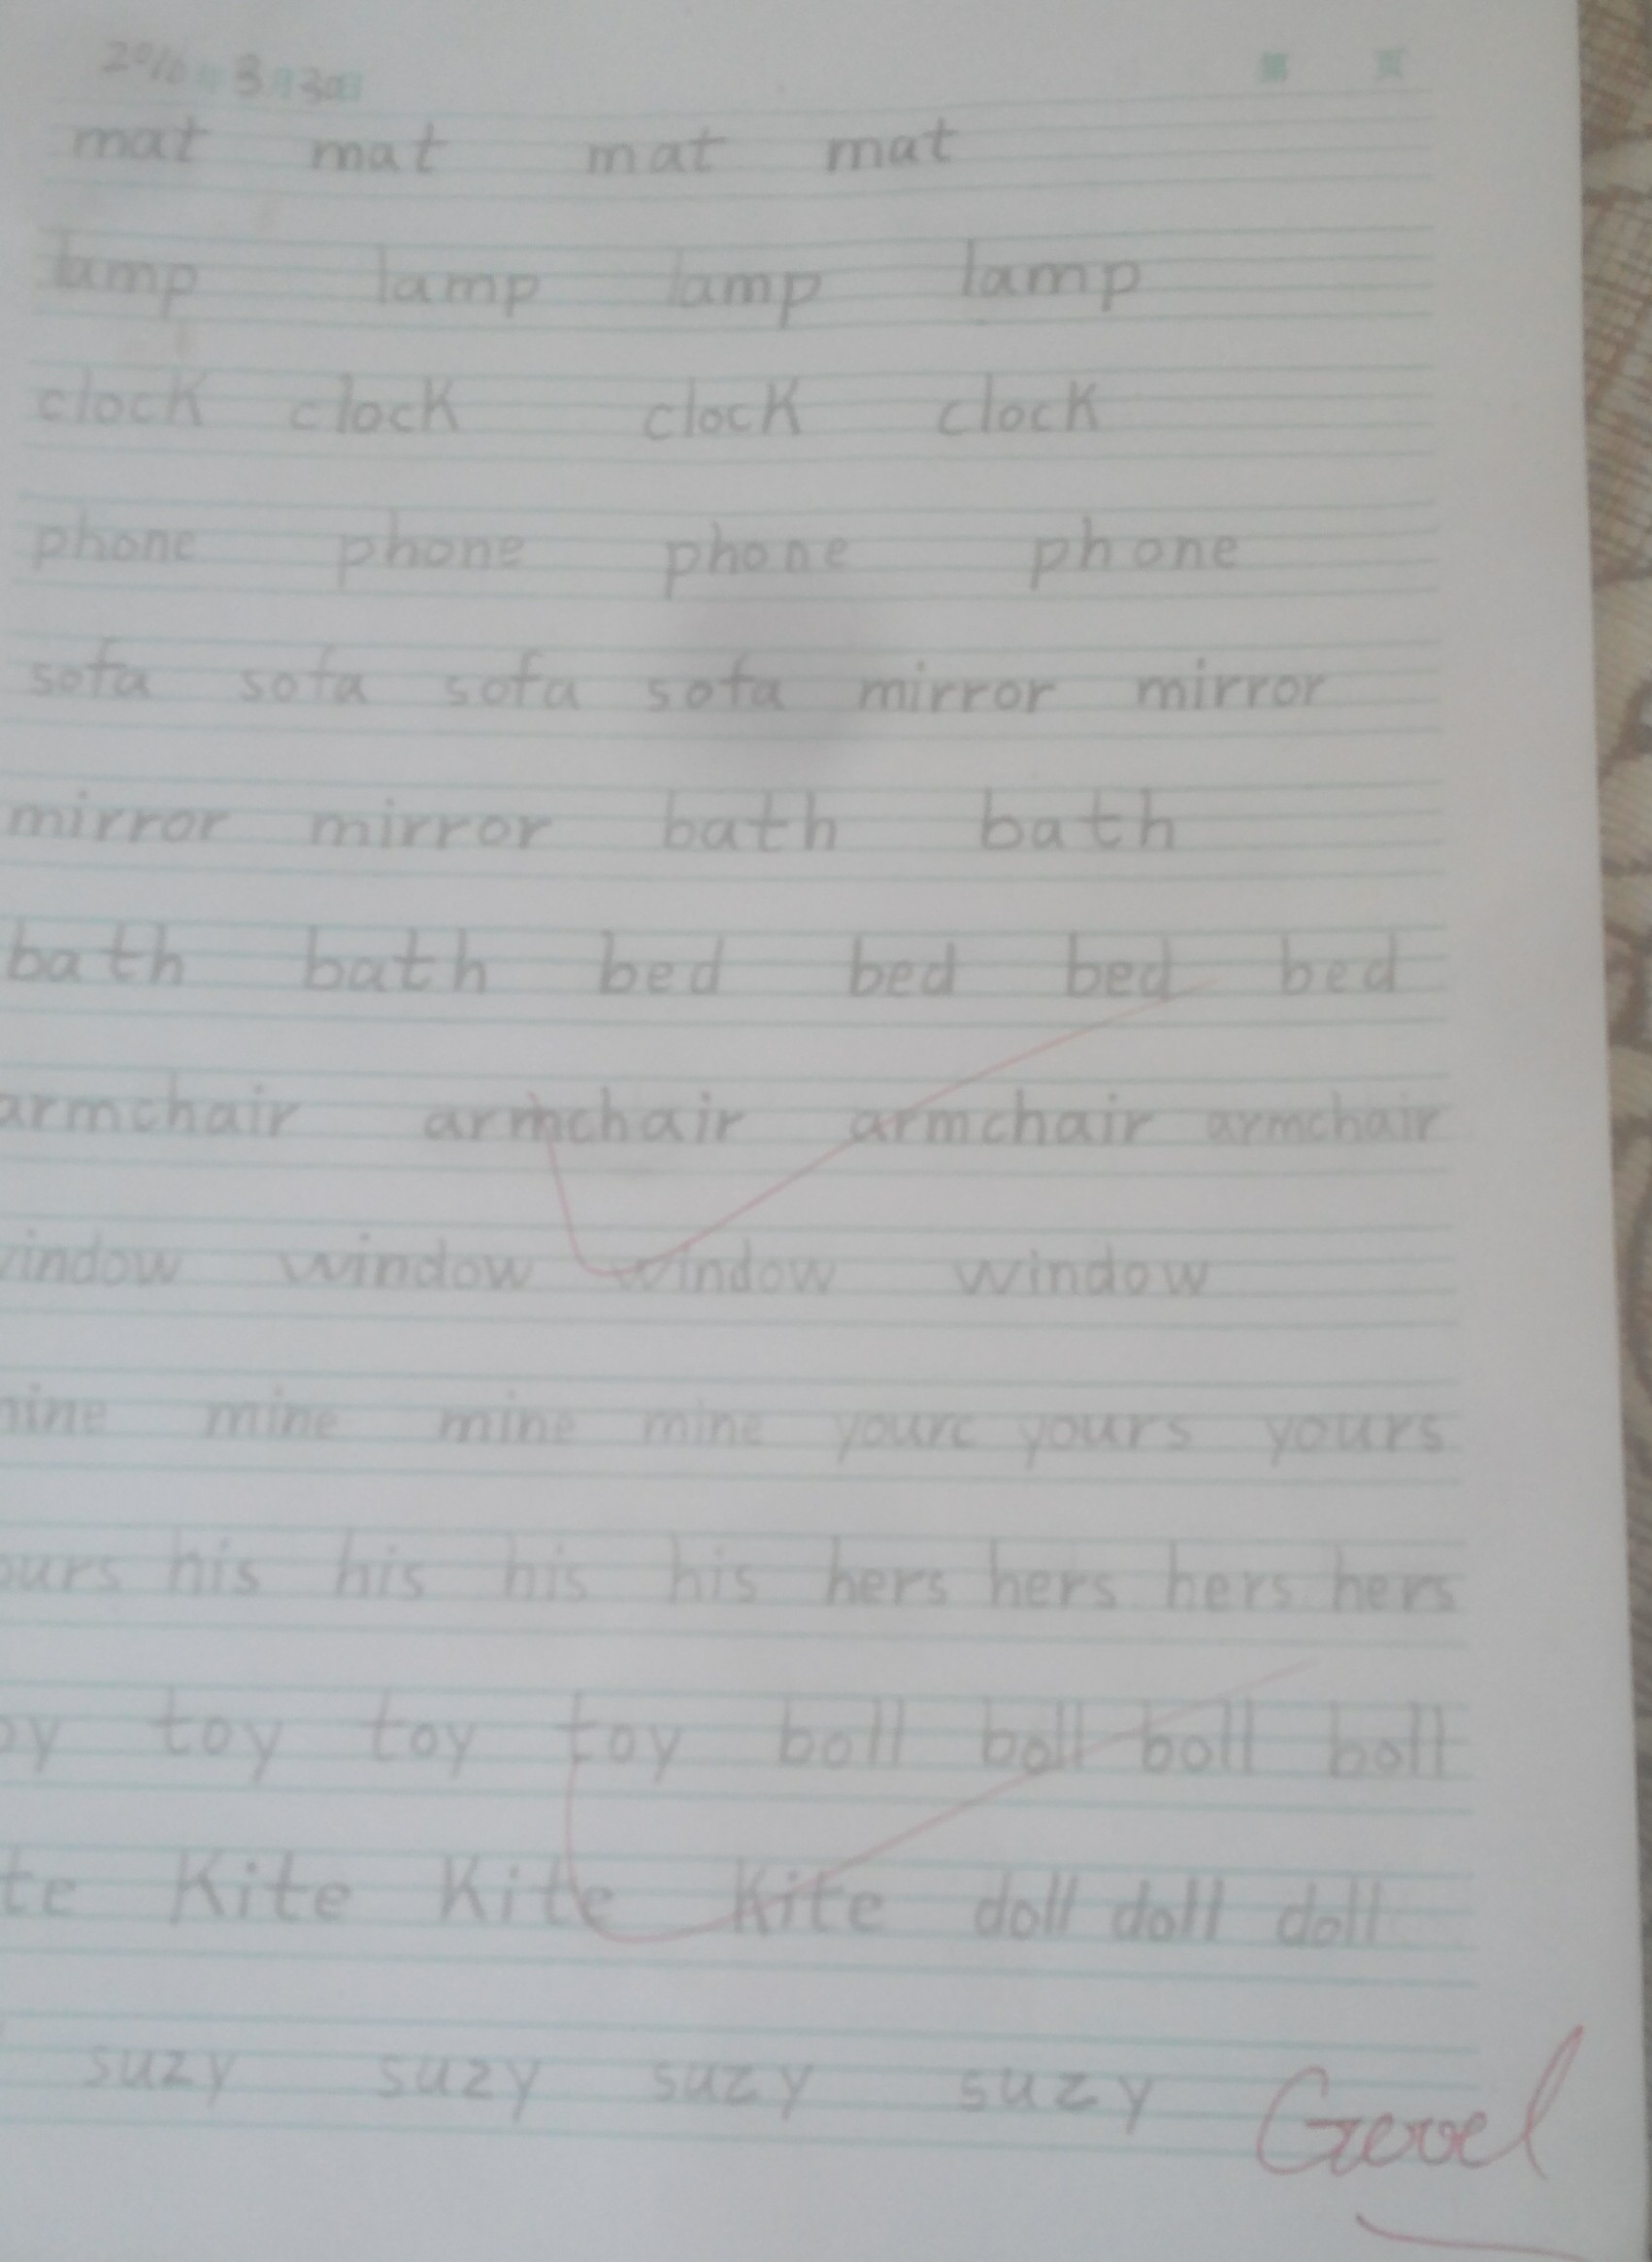 2016 3 30
第 页
mat mat mat mat
lamp lamp lamp lamp
clock clock clock clock
phone phone phone phone
sofa sofa sofa sofa mirror mirror
mirror mirror bath bath
bath bath bed bed bed bed
armchair armchair armchair armchair
indow window window window
ine mine mine mine yours yours yours
ours his his his his hers hers hers hers
oy toy toy toy boll boll boll boll
te Kite Kite Kite doll doll doll
suzy suzy suzy suzy
Good